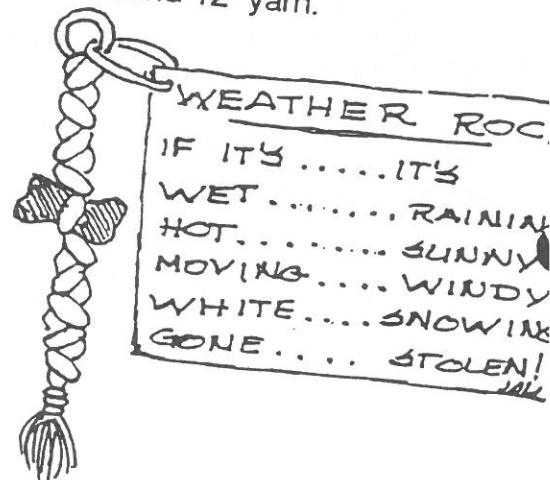 12" yarn.
WEATHER ROC
IF IT'S ..... IT'S
WET ........ RAININ
HOT ......... SUNNY
MOVING .... WINDY
WHITE .... SNOWING
GONE ..... STOLEN!